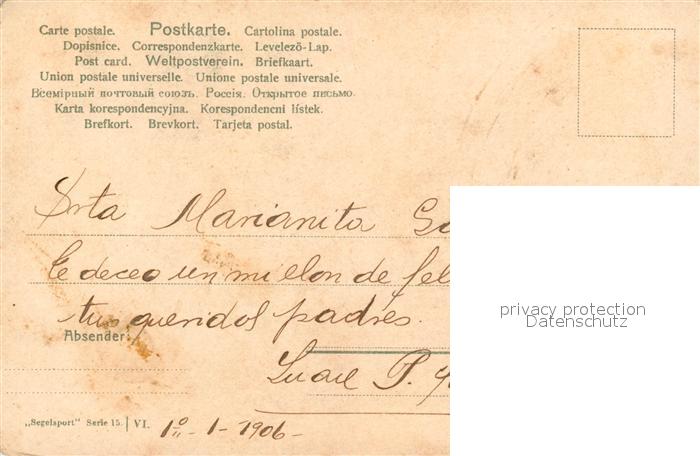 Carte postale. Postkarte. Cartolina postale.
Dopisnice. Correspondenzkarte. Levelező-Lap.
Post card. Weltpostverein. Briefkaart.
Union postale universelle. Unione postale universale.
Всемірный почтовый союзъ. Россія. Открытое письмо.
Karta korespondencyjna. Korespondencni lístek.
Brefkort. Brevkort. Tarjeta postal.
Srta Marianita
le deceo un millon de
tus queridos padres.
Absender:
P.
„Segelsport" Serie 15. VI. 1º - 1 - 1906 -
privacy protection
Datenschutz